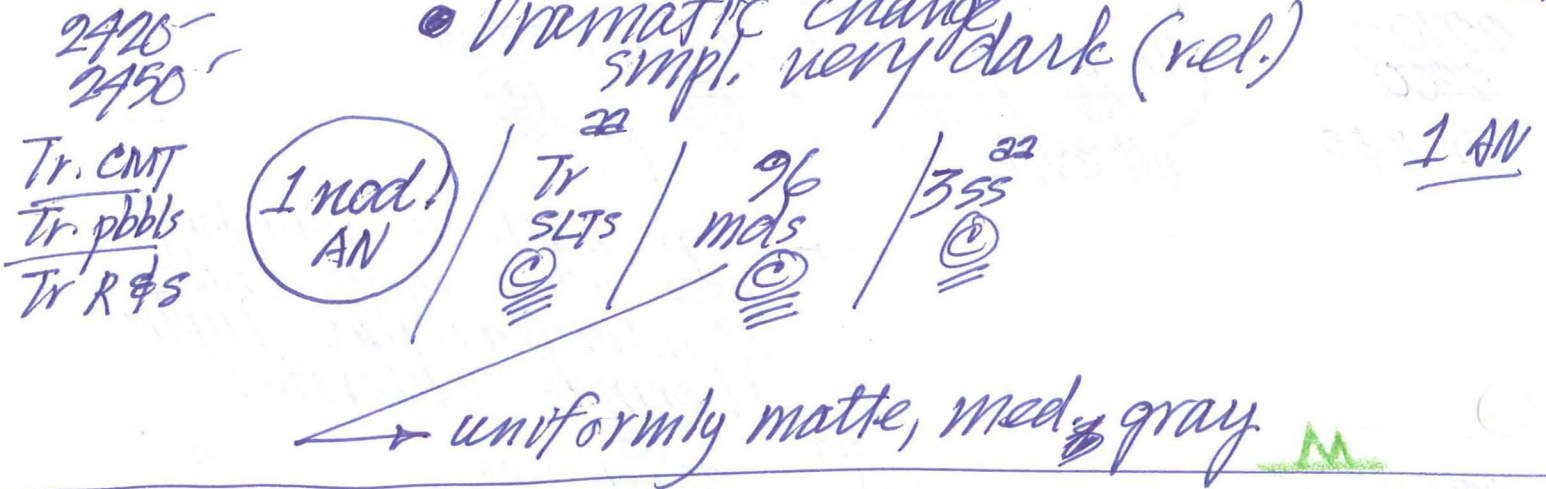 2420-
2450'
• Dramatic change
smpl. very dark (rel.)
Tr. CMT
Tr. pbbls
Tr R&S
1 nod!
AN
aa
Tr
SLTS
©
96
mds
©
aa
3ss
©
1 AN
uniformly matte, med. gray
M